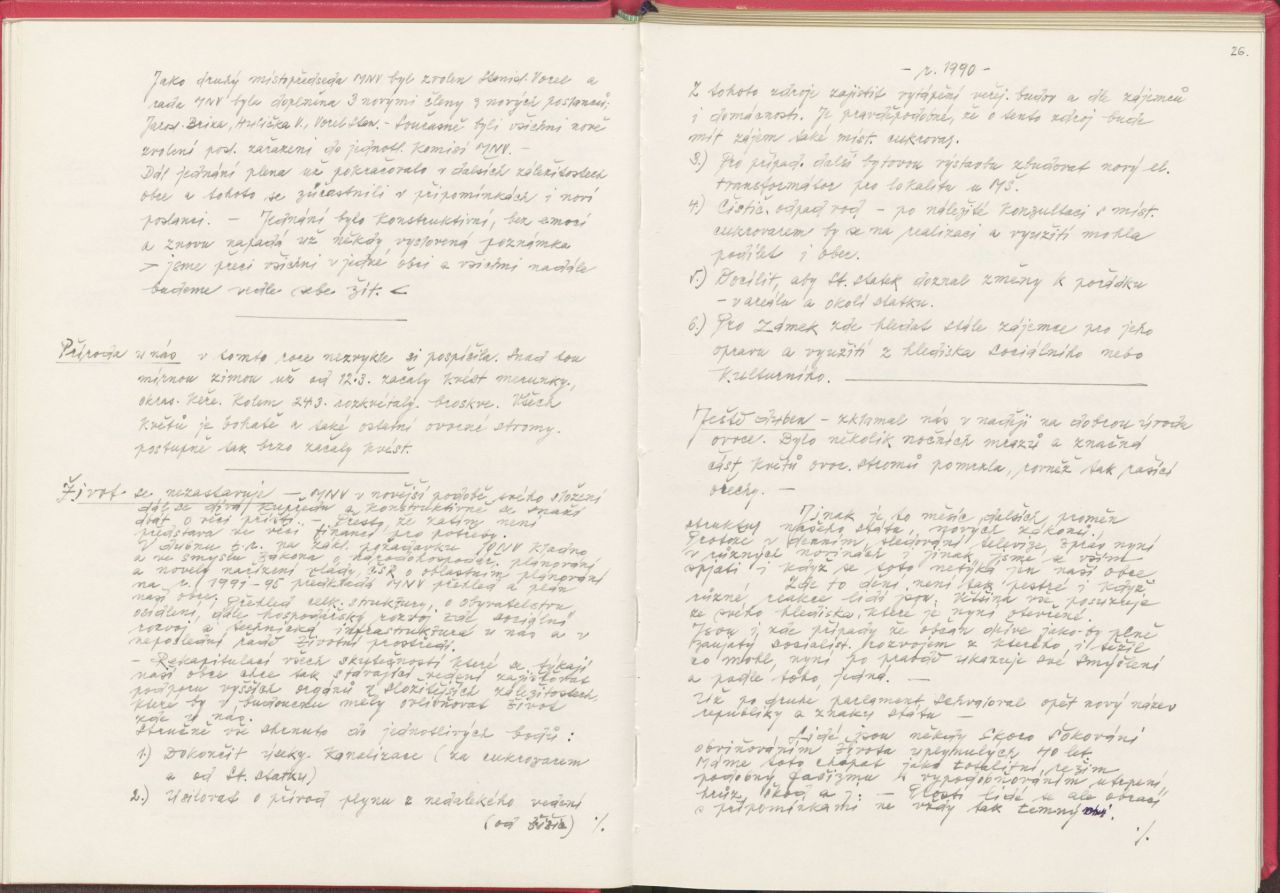 Jako druhý místopředseda MNV byl zvolen Stanisl. Vorel a
rada MNV byla doplněna 3 novými členy z nových poslanců:
Jarosl. Brixa, Hulička V., Vorel Stan. - Současně byli všichni nově
zvolení posl. zařazeni do jednotl. komisí MNV. -
Dál jednání plena už pokračovalo v dalších záležitostech
obce a tohoto se zúčastnili v připomínkách i noví
poslanci. - Jednání bylo konstruktivní, bez emocí
a znovu napadá už někdy vyslovená poznámka
> jsme přeci všichni v jedné obci a všichni nadále
budeme vedle sebe žít. <
Příroda u nás v tomto roce nezvykle si pospíšila. Snad tou
mírnou zimou už od 12.3. začaly kvést meruňky,
okras. keře. Kolem 24.3. rozkvétaly broskve. Všech
květů je bohatě a také ostatní ovocné stromy
postupně tak brzo začaly kvést.
Život se nezastavuje - MNV v novější podobě svého složení
dál se dívá kupředu a konstruktivně se snaží
dbát o věci příští. - Přesto, že zatím není
představa ve věci financí pro potřeby.
V dubnu t.r. na zákl. požadavku ONV Kladno
a ve smyslu zákona o národohospodář. plánování
a novely nařízení vlády ČSR o oblastním plánování
na r. 1991-95 předkládá MNV přehled a plán
naší obce. Přehled celk. struktury, o obyvatelstvu,
osídlení, dále hospodářský rozvoj, dál sociální
rozvoj a technická infrastruktura u nás a v
neposlední řadě životní prostředí.
- Rekapitulací všech skutečností které se týkají
naší obce chce tak stávající vedení zajišťovat
podporu vyšších orgánů z složitějších záležitostech,
které by v budoucnu měly ovlivňovat život
zde u nás.
Stručně vše shrnuto do jednotlivých bodů:
1.) Dokončit úseky kanalizace (za cukrovarem
a od St. statku)
2.) Usilovat o přívod plynu z nedalekého vedení
(od ) ./.
26.
- r. 1990 -
Z tohoto zdroje zajistit vytápění veřej. budov a dle zájemců
i domácností. Je pravděpodobné, že o tento zdroj bude
mít zájem také míst. cukrovar.
3.) Pro případ. další bytovou výstavbu zbudovat nový el.
transformátor pro lokalitu u MŠ.
4.) Čistič. odpad. vod - po náležité konzultaci s míst.
cukrovarem by se na realizaci a využití mohla
podílet i obec.
5.) Docílit, aby St. statek doznal změny k pořádku
- v areálu a okolí statku.
6.) Pro Zámek zde hledat stále zájemce pro jeho
opravu a využití z hlediska sociálního nebo
kulturního.
Ještě duben - zklamal nás v naději na dobrou úrodu
ovoce. Bylo několik nočních mrazů a značná
část květů ovoc. stromů pomrzla, rovněž tak rašící
ořechy. -
Jinak je to měsíc dalších proměn
struktur našeho státu, nových zákonů.
Protože v denním sledování televize, zpráv nyní
v různých novinách i jinak jsme s vším
spjati i když se toto netýká jen naší obce.
Zde to dění není tak pestré i když
různé reakce lidí jsou. Většina vše posuzuje
ze svého hlediska, které je nyní otevřené.
Jsou i zde případy že občan dříve jako-by plně
zaujatý socialist. rozvojem z kterého i těžil
co mohl, nyní po pravdě ukazuje své smýšlení
a podle toho jedná. -
Už po druhé parlament schvaloval opět nový název
republiky a znaky státu -
Lidé jsou někdy skoro šokováni
obviňováním života uplynulých 40 let.
Máme toto chápat jako totalitní režim
podobný fašizmu k vypodobňováním utrpení,
hrůz, škod a j: - Prostí lidé se ale obrací
s připomínkami ne vždy tak temnými.
./.